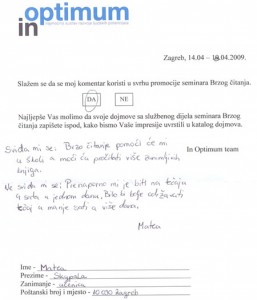 in optimum
Zagreb, 14.04 – 18.04.2009.
Slažem se da se moj komentar koristi u svrhu promocije seminara Brzog čitanja.
DA NE
Najljepše Vas molimo da svoje dojmove sa službenog dijela seminara Brzog
čitanja zapišete ispod, kako bismo Vaše impresije uvrstili u katalog dojmova.
In Optimum team
Sviđa mi se: Brzo čitanje pomoći će mi
u školi a moći ću pročitati više zanimljivih
knjiga.
Ne sviđa mi se: Prenaporno mi je biti na tečaju
4 sata u jednom danu. Bilo bi bolje održavati
tečaj a manje sati a više dana.
Matea
Ime - Matea
Prezime -
Zanimanje - učenica
Poštanski broj i mjesto - 10 000 Zagreb